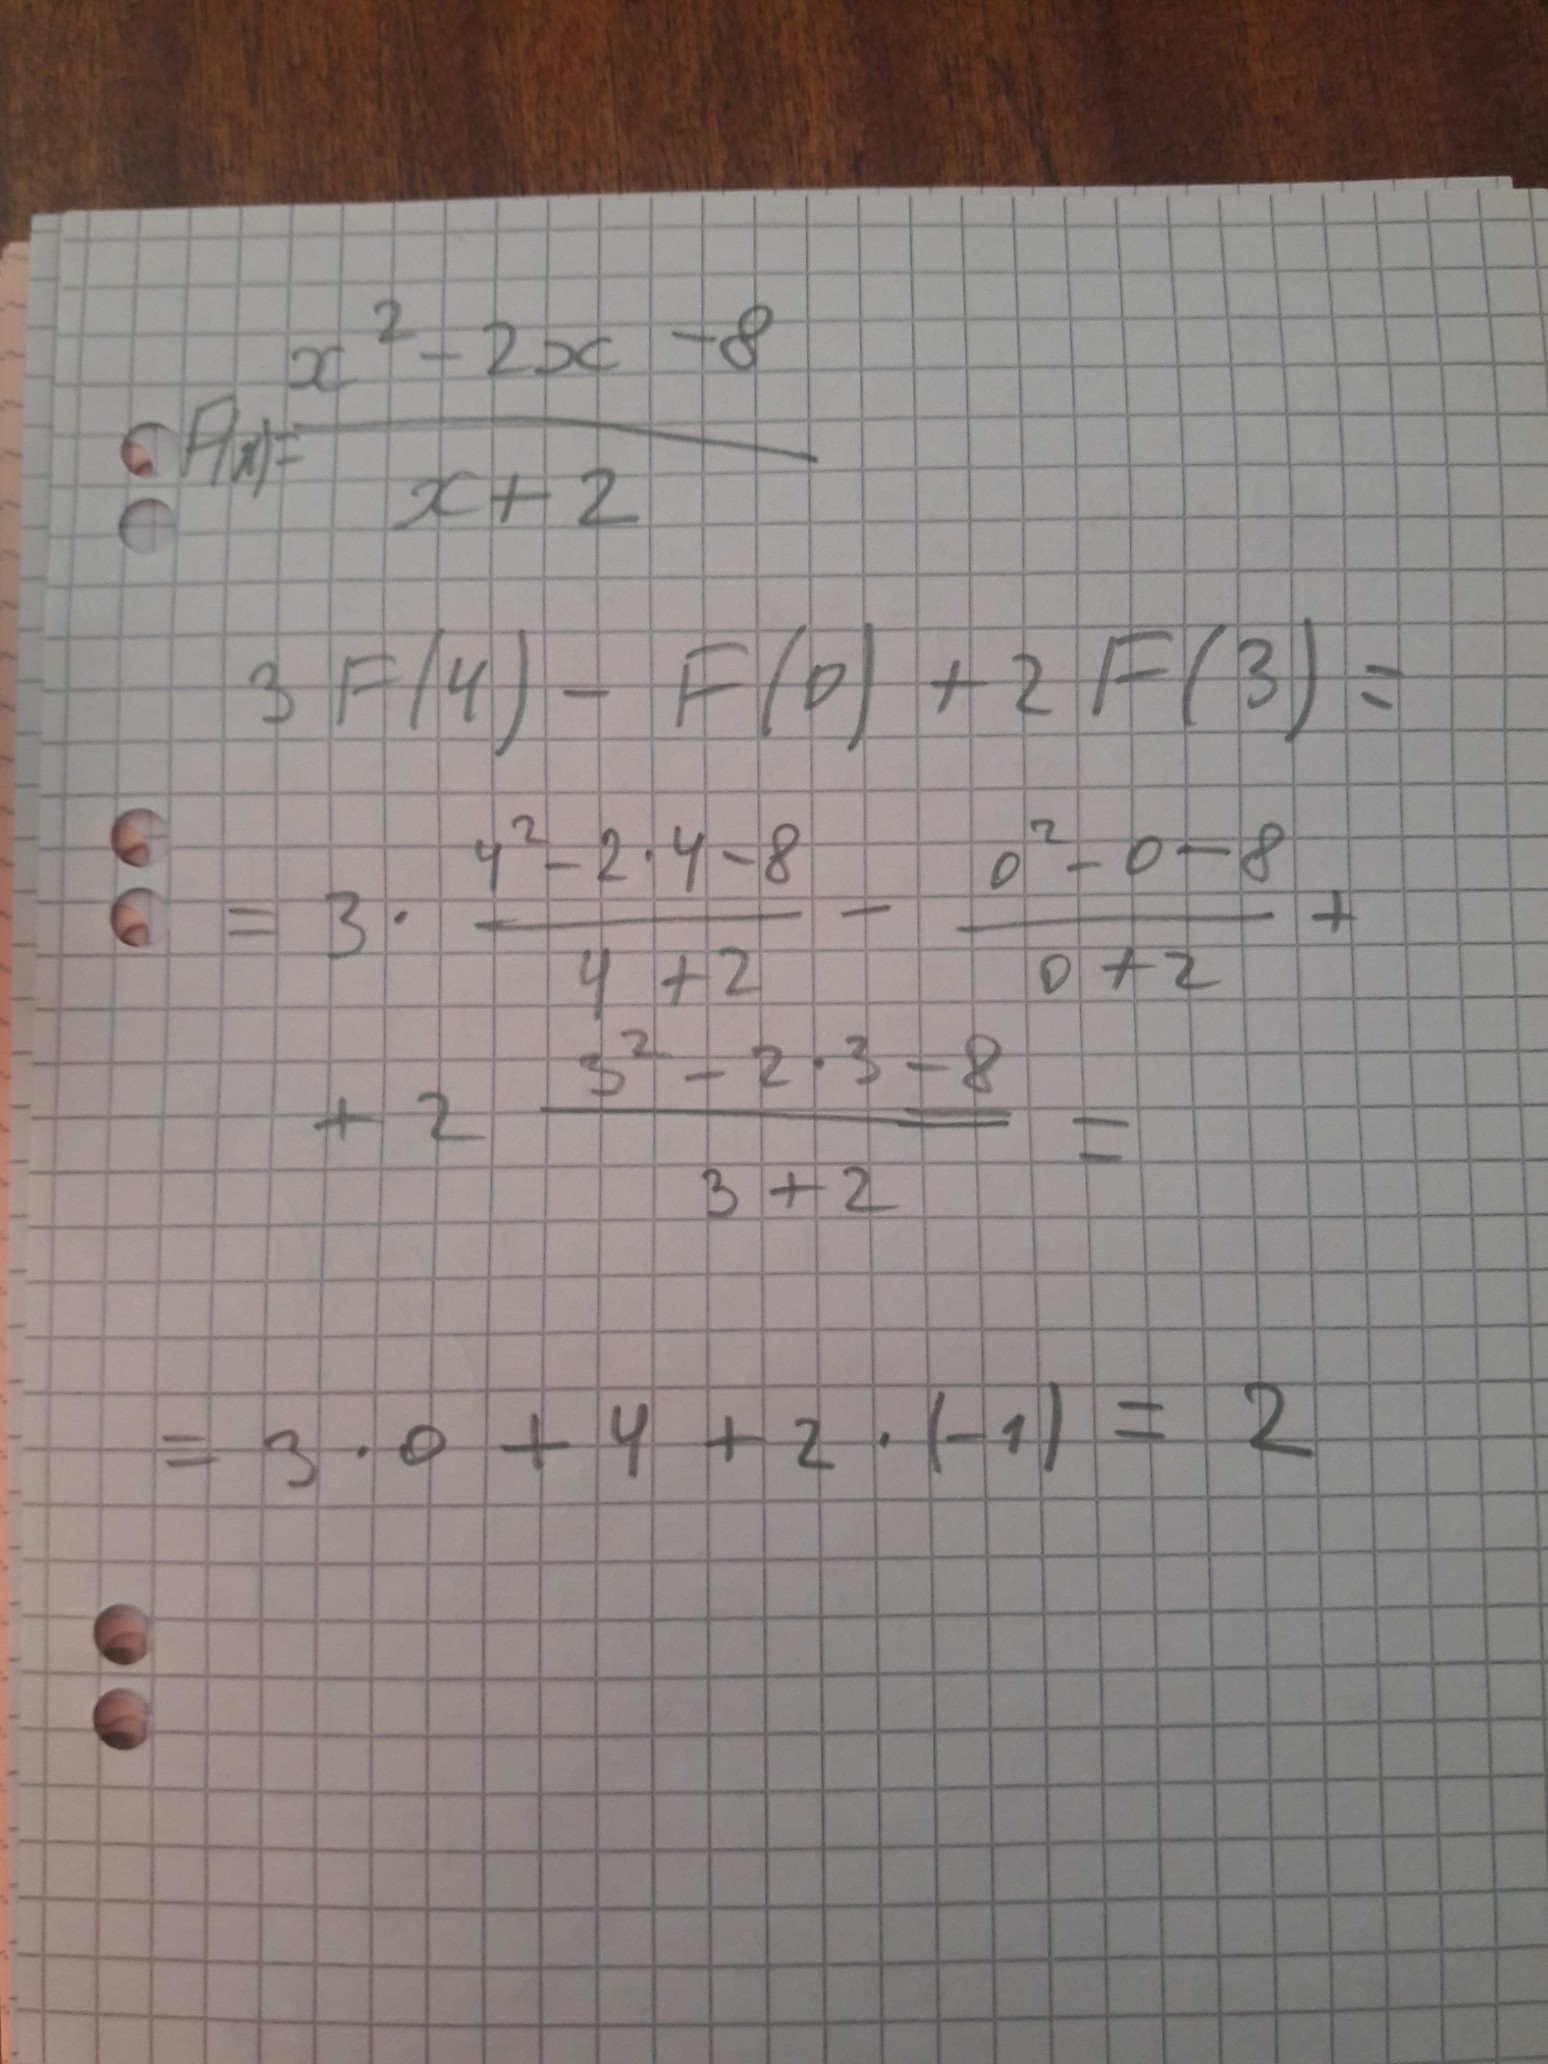 F(x)= (x² - 2x - 8) / (x + 2)
3 F(4) - F(0) + 2 F(3) =
= 3 · (4² - 2 · 4 - 8) / (4 + 2) - (0² - 0 - 8) / (0 + 2) +
+ 2 (3² - 2 · 3 - 8) / (3 + 2) =
= 3 · 0 + 4 + 2 · (-1) = 2